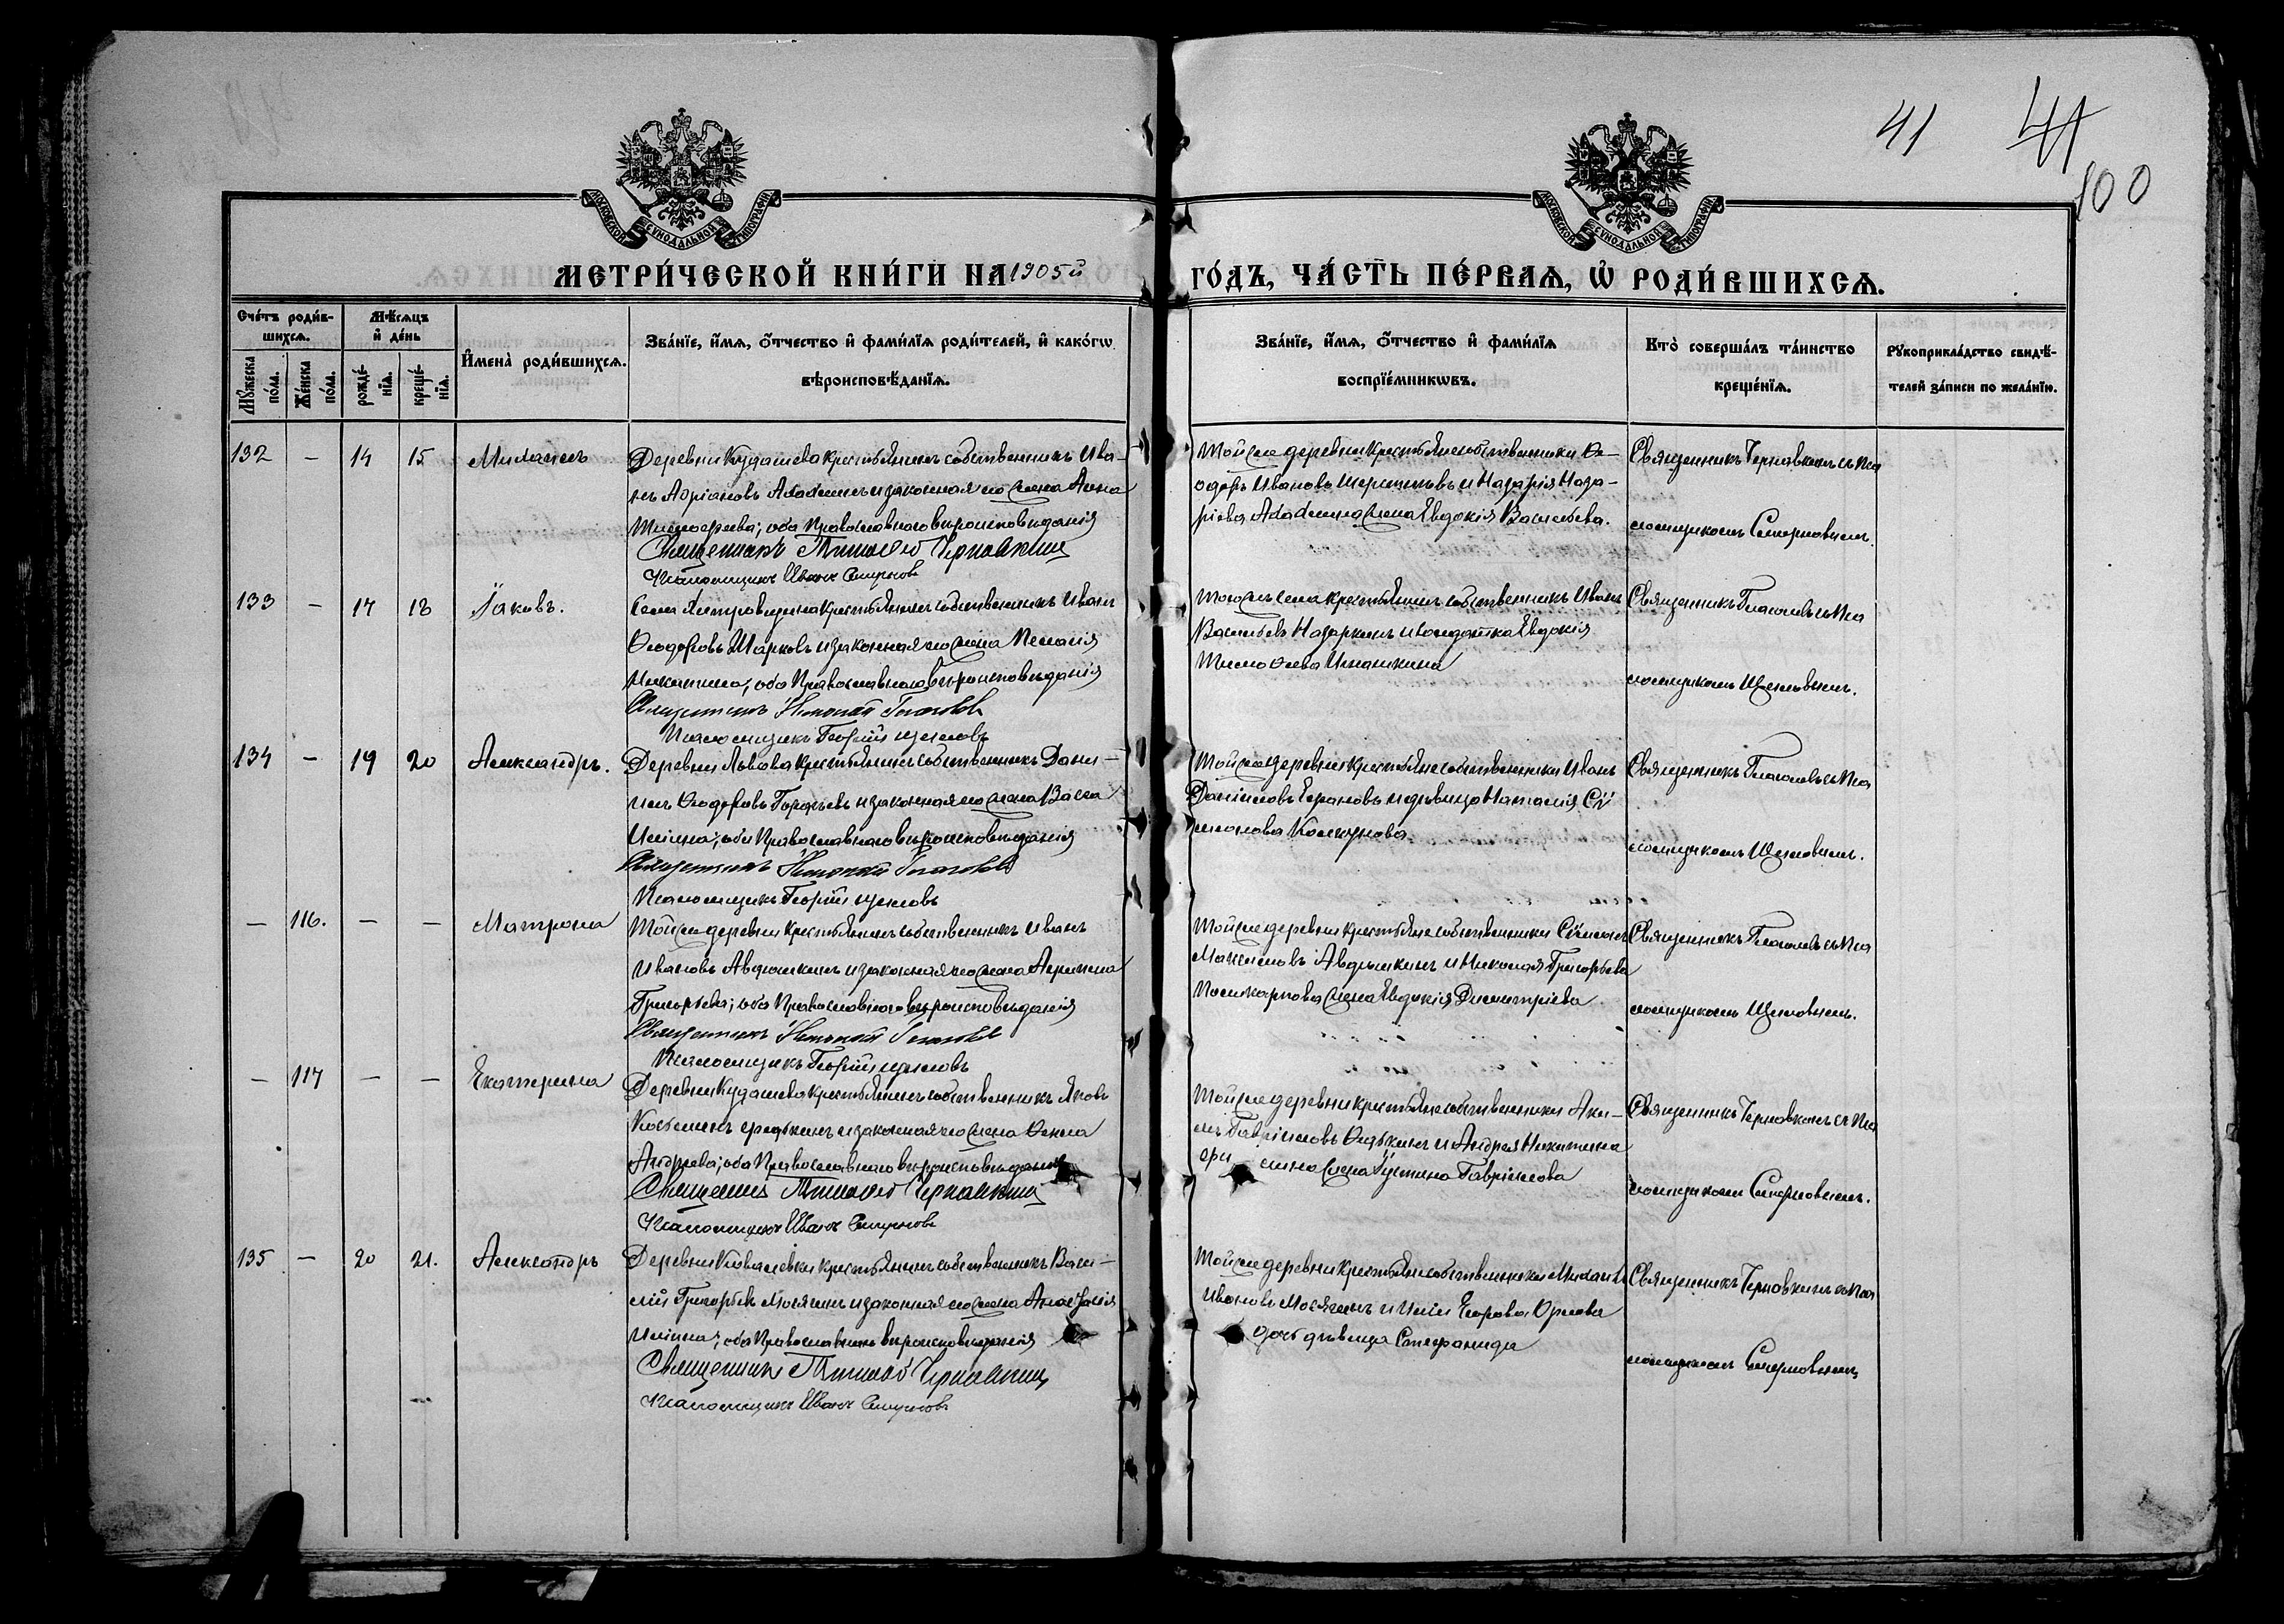 41 41
100
МОСКОВСКОЙ СѴНОДАЛЬНОЙ ТИПОГРАФІИ
МОСКОВСКОЙ СѴНОДАЛЬНОЙ ТИПОГРАФІИ
МЕТРИ́ЧЕСКОЙ КНИ́ГИ НА 1905й ГО́ДЪ, ЧА́СТЬ ПЕ́РВАѦ, Ѡ҆ РОДИ́ВШИХСѦ.
Сче́тъ роди́в-
шихсѧ.
Мꙋ́жеска по́ла.
Же́нска по́ла.
Мѣ́сѧцъ и҆ де́нь
рожде́-нїѧ.
креще́-нїѧ.
И҆мена̀ роди́вшихсѧ.
Зва́нїе, и҆́мѧ, ѻ҆́тчество и҆ фами́лїѧ роди́телей, и҆ како́гѡ
вѣроисповѣ́данїѧ.
Зва́нїе, и҆́мѧ, ѻ҆́тчество и҆ фами́лїѧ
воспрїе́мникѡвъ.
Кто̀ соверша́лъ та́инство
креще́нїѧ.
Рꙋкоприкла́дство свидѣ́-
телей за́писи по жела́нїю.
132 — 14 15 Михаилъ
Деревни Кудашева крестьянинъ собственникъ Ива-
нъ Адріановъ и законная его жена Анна
Тимофеева; оба Православнаго вѣроисповѣданія
Священникъ Тимофей Чернавкинъ
Псаломщикъ Иванъ Смирновъ
Той же деревни крестьяне собственники Ѳе-
одоръ Ивановъ и Назарія Наза-
рьева жена Евдокія Васильева.
Священникъ Чернавкинъ съ пса
ломщикомъ Смирновымъ.
133 — 17 18 Іаковъ.
Села крестьянинъ собственникъ Иванъ
Ѳеодоровъ Шарковъ и законная его жена Пелагія
Никитина; оба Православнаго вѣроисповѣданія
Священникъ Николай Глаголевъ
Псаломщикъ Георгій Щегловъ
Того же села крестьянинъ собственникъ Иванъ
Васильевъ Назаркинъ и солдатка Евдокія
Тимоѳеева Игнашкина
Священникъ Глаголевъ съ пса
ломщикомъ Щегловымъ.
134 — 19 20 Александръ.
Деревни Львова крестьянинъ собственникъ Дани-
илъ Ѳеодоровъ и законная его жена Васса
Ильина; оба Православнаго вѣроисповѣданія
Священникъ Николай Глаголевъ
Псаломщикъ Георгій Щегловъ
Той же деревни крестьяне собственники Иванъ
Даніиловъ и дѣвица Наталія Сѵ
меонова
Священникъ Глаголевъ съ пса
ломщикомъ Щегловымъ.
— 116. — — Матрона
Той же деревни крестьянинъ собственникъ Иванъ
Ивановъ Авдошкинъ и законная его жена Агрипина
Григорьева; оба Православнаго вѣроисповѣданія
Священникъ Николай Глаголевъ
Псаломщикъ Георгій Щегловъ
Той же деревни крестьяне собственники Сѵмеонъ
Максимовъ Авдошкинъ и Николая Григорьева
Поликарпова жена Евдокія Димитріева
Священникъ Глаголевъ съ пса
ломщикомъ Щегловымъ.
— 117 — — Екатерина
Деревни Кудашева крестьянинъ собственникъ Яковъ
Косьминъ и законная его жена Ѳекла
Андреева; оба Православнаго вѣроисповѣданія
Священникъ Тимофей Чернавкинъ
Псаломщикъ Иванъ Смирновъ
Той же деревни крестьяне собственники Аки-
мъ Гавріиловъ Ѳедькинъ и Андрея Никитина
жена Іустина Гавріилова
Священникъ Чернавкинъ съ пса
ломщикомъ Смирновымъ.
135 — 20 21. Александръ
Деревни Ковалевки крестьянинъ собственникъ Васи-
лій Григорьевъ Мосягинъ и законная его жена Анастасія
Ильина; оба Православнаго вѣроисповѣданія
Священникъ Тимофей Чернавкинъ
Псаломщикъ Иванъ Смирновъ
Той же деревни крестьяне собственники Михаилъ
Ивановъ Мосягинъ и Иліи Егорова Орлова
дочь дѣвица Стефанида
Священникъ Чернавкинъ съ пса
ломщикомъ Смирновымъ